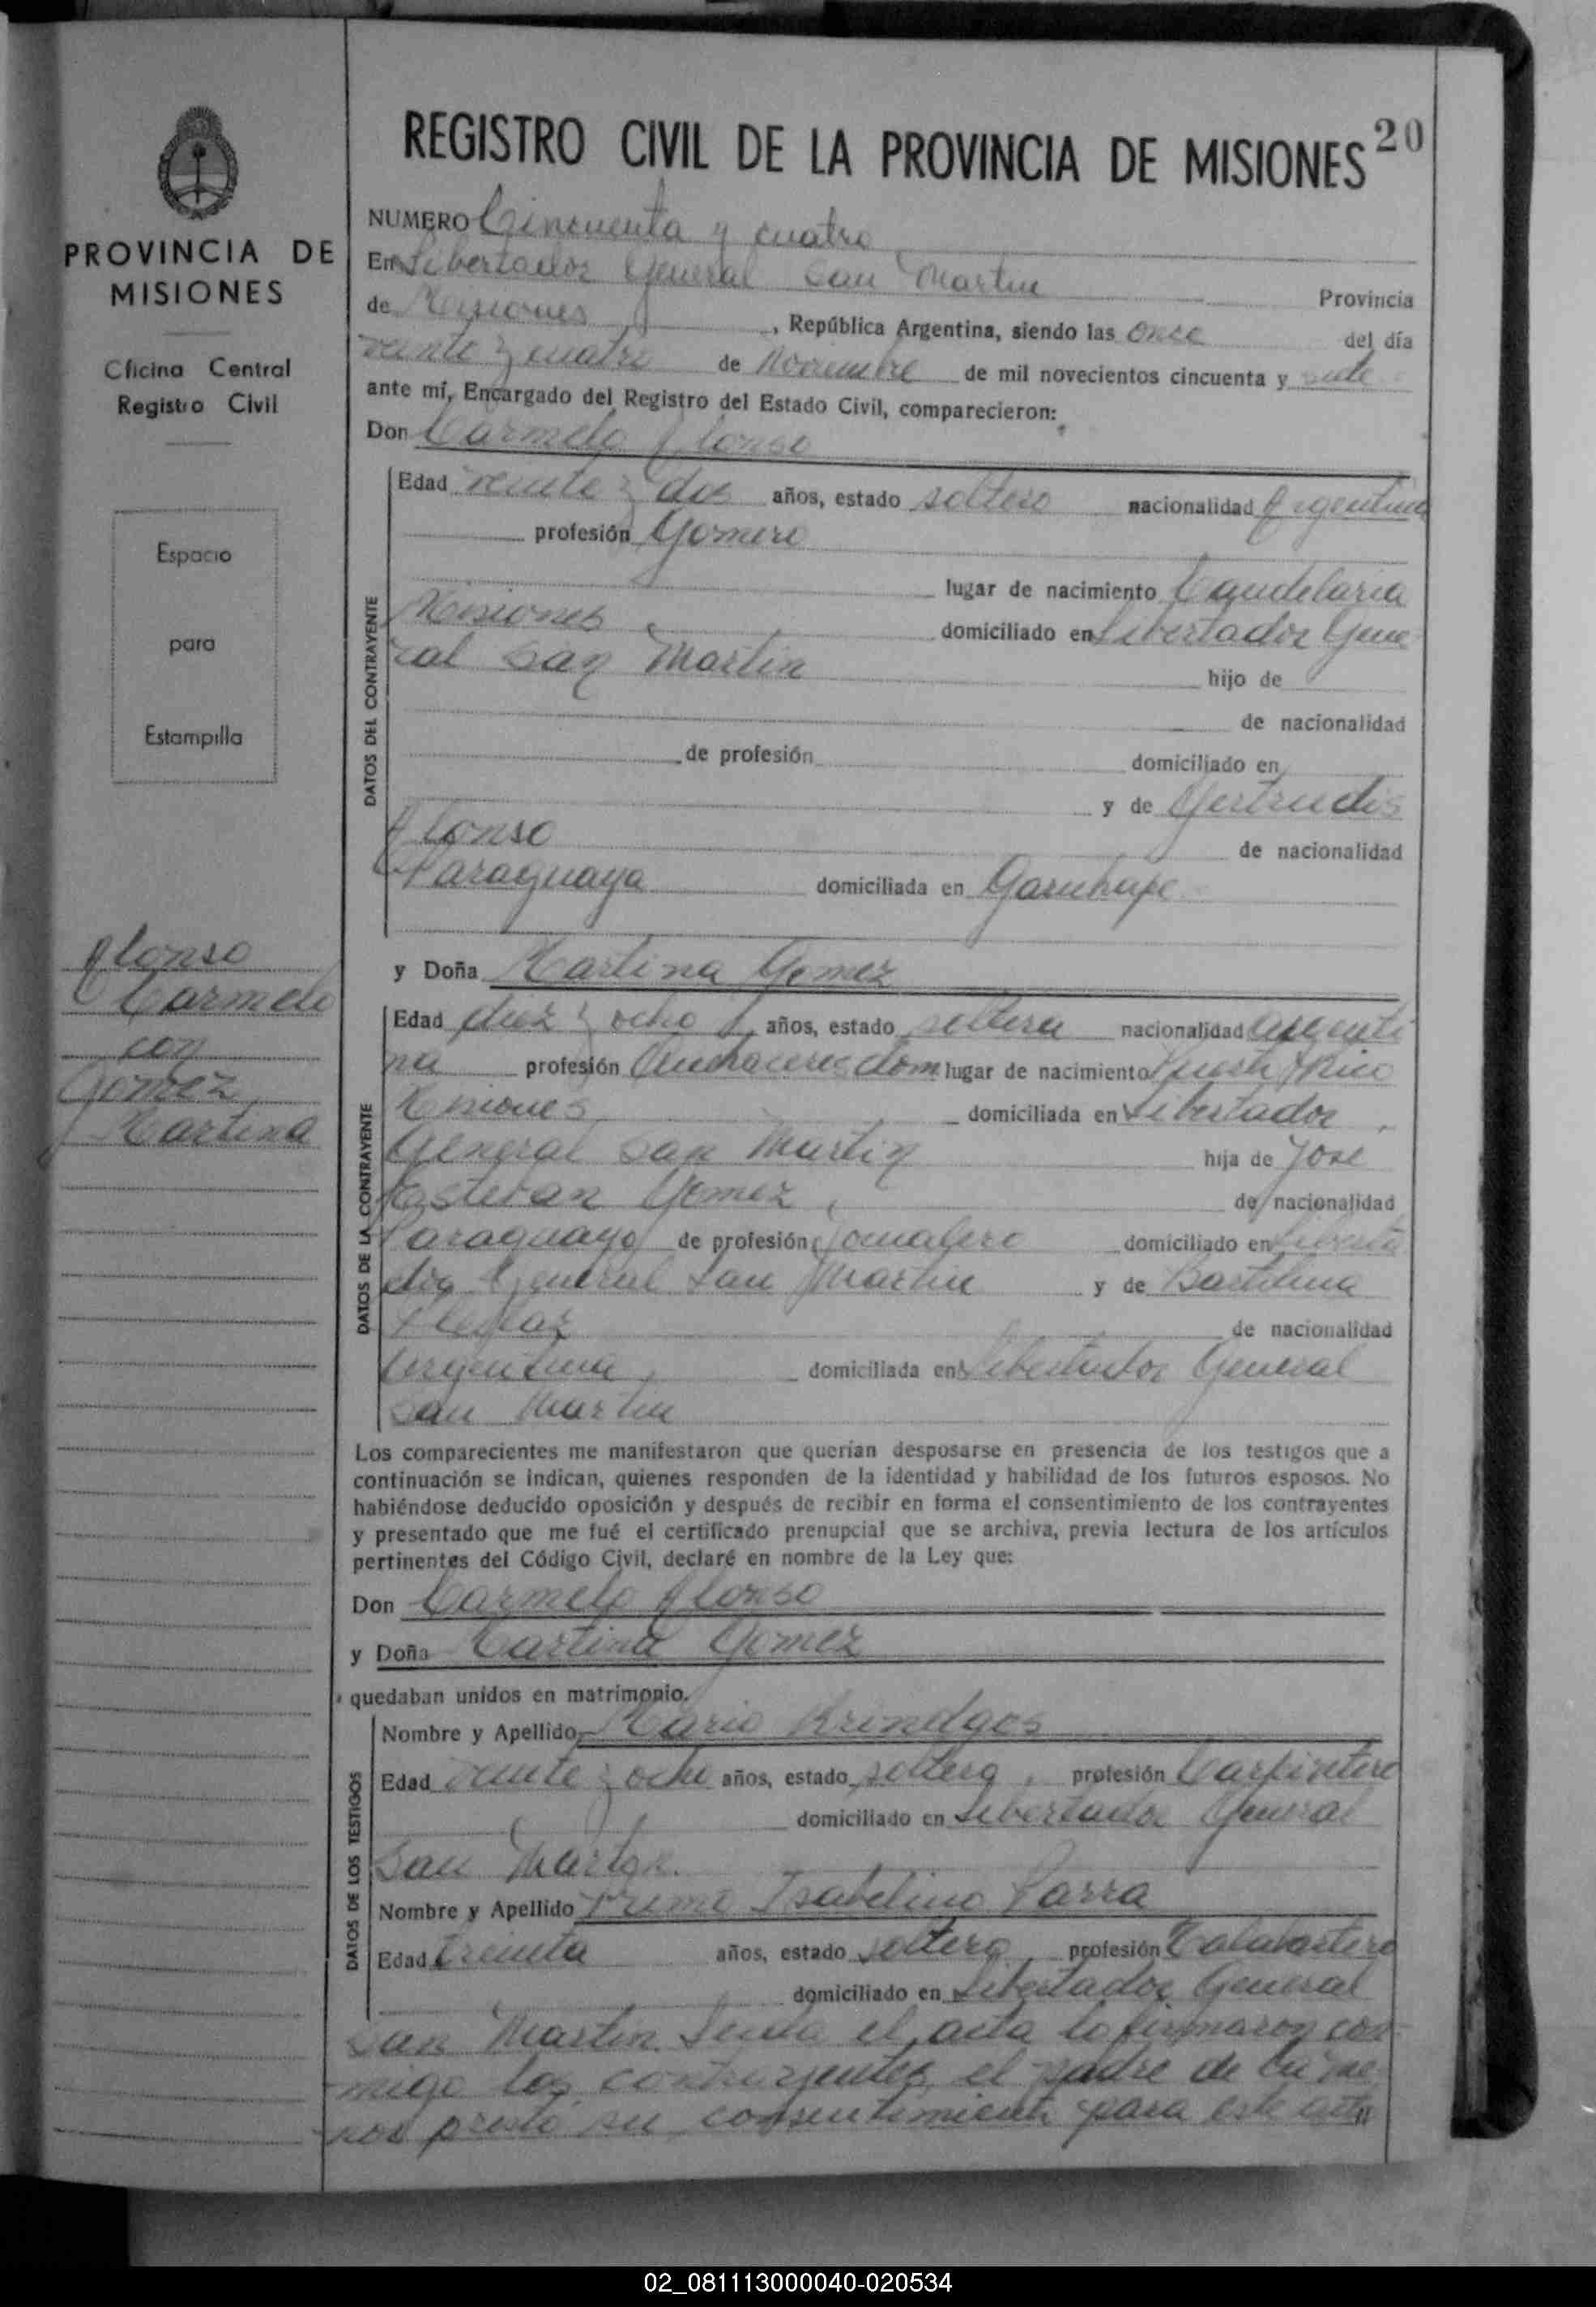 REGISTRO CIVIL DE LA PROVINCIA DE MISIONES 20
PROVINCIA DE
MISIONES
Oficina Central
Registro Civil
Espacio
para
Estampilla
Alonso
Carmelo
con
Gomez
Martina
NUMERO Cincuenta y cuatro
En Libertador General San Martin Provincia
de Misiones, República Argentina, siendo las once del día
veinte y cuatro de Noviembre de mil novecientos cincuenta y siete
ante mí, Encargado del Registro del Estado Civil, comparecieron:
Don Carmelo Alonso
DATOS DEL CONTRAYENTE
Edad veinte y dos años, estado soltero nacionalidad Argentina
profesión Gomero
lugar de nacimiento Candelaria
Misiones domiciliado en Libertador Gene
ral San Martin hijo de
de nacionalidad
de profesión domiciliado en
y de Gertrudis
Alonso de nacionalidad
Paraguaya domiciliada en Garuhape
y Doña Martina Gomez
DATOS DE LA CONTRAYENTE
Edad diez y ocho años, estado soltera nacionalidad argenti
na profesión Quehaceres dom lugar de nacimiento Puerto Rico
Misiones domiciliada en Libertador
General San Martin hija de José
Estevan Gomez, de nacionalidad
Paraguayo de profesión Jornalero domiciliado en Liberta
dor General San Martin y de
de nacionalidad
Argentina, domiciliada en Libertador General
San Martin
Los comparecientes me manifestaron que querían desposarse en presencia de los testigos que a
continuación se indican, quienes responden de la identidad y habilidad de los futuros esposos. No
habiéndose deducido oposición y después de recibir en forma el consentimiento de los contrayentes
y presentado que me fué el certificado prenupcial que se archiva, previa lectura de los artículos
pertinentes del Código Civil, declaré en nombre de la Ley que:
Don Carmelo Alonso
y Doña Martina Gomez
quedaban unidos en matrimonio.
DATOS DE LOS TESTIGOS
Nombre y Apellido Mario
Edad veinte y ocho años, estado soltero, profesión Carpintero
domiciliado en Libertador General
San Martin.
Nombre y Apellido Primo Isabelino Parra
Edad treinta años, estado soltero profesión Talabartero
domiciliado en Libertador General
San Martin. Leida el acta la firmaron con
migo los contrayentes, el padre de la me
nor prestó su consentimiento para este acto
02_081113000040-020534